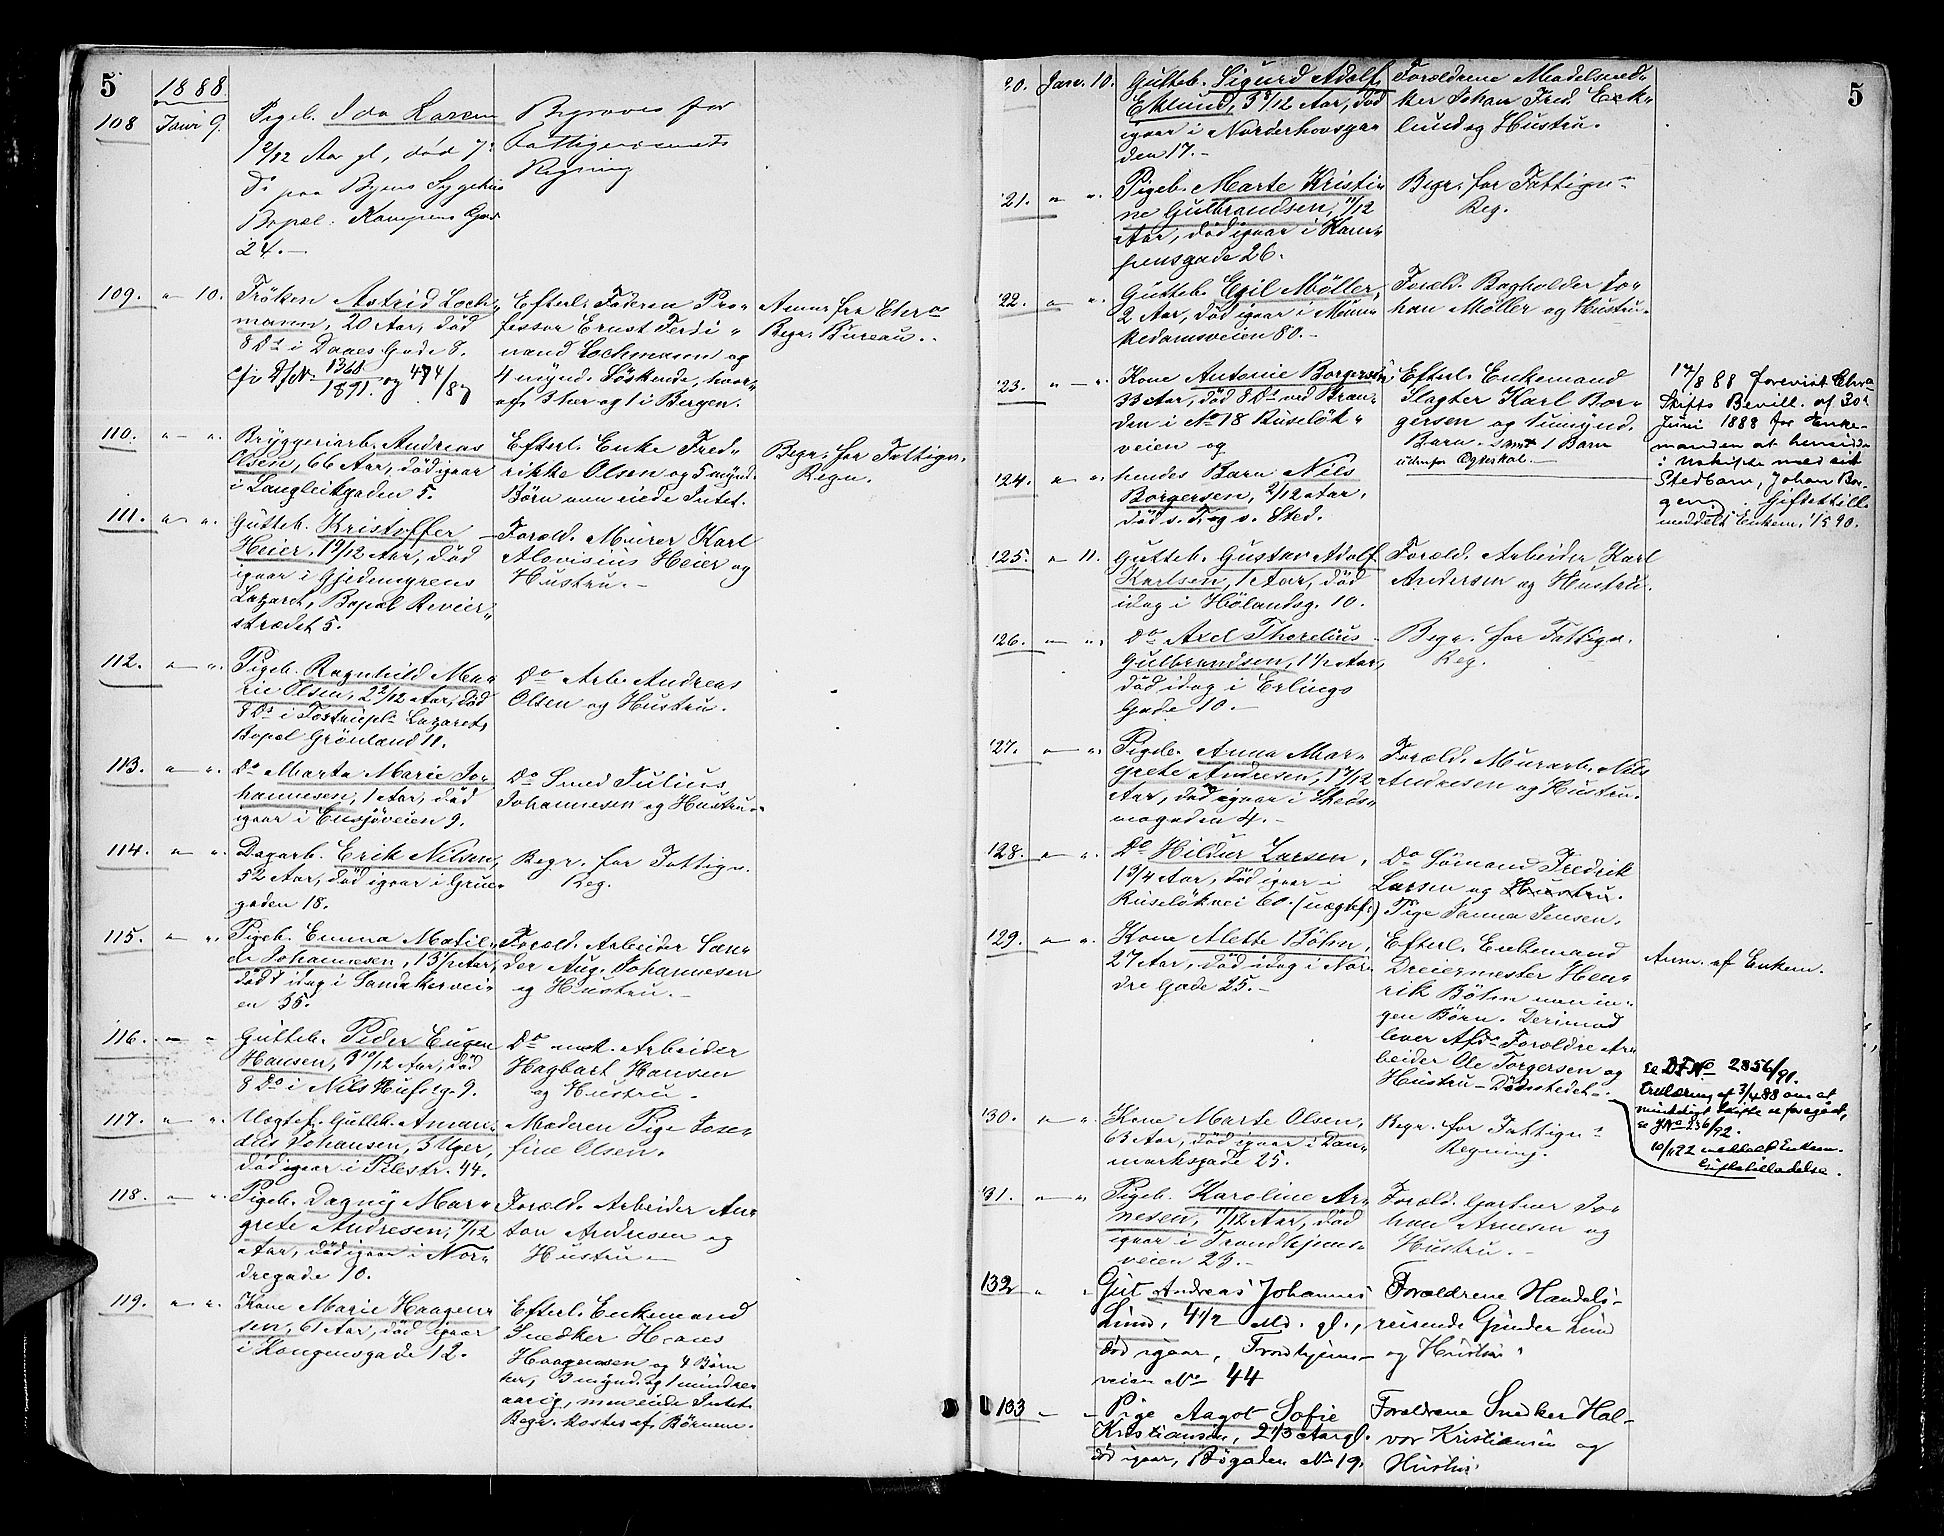 5
1888.
108 Janr 9. Pigeb. Ida Larsen
1 2/12 Aar gl, død 7de
Ds paa Byens Sygehus
Bopæl. Kampens Gad
24.
Begraves for
Fattigvæsenets
Regning
109. " – 10. Frøken Astrid Loch-
mann, 20 Aar, død
8 Ds i Daaes Gade 8.
1368/1891. og 474/87
Efterl. Faderen Pro-
fessor Ernst Ferdi-
nand Lochmann og
4 mynd. Søskende, hvor-
af 3 her og 1 i Bergen.
Anm. fra Chr.a
Begr. Bureau.
110. " – ". Bryggeriarb. Andreas
Olsen, 66 Aar, død igaar
i Langleikgaden 5.
Efterl. Enke Fred-
rikke Olsen og 5 mynd.
Børn men eiede Intet.
Begr. for Fattigv.
Regn.
111. " – ". Gutteb. Kristoffer
Heier, 1 9/12 Aar, død
igaar i Gjedemyrens
Lazaret, Bopæl Revier-
strædet 5.
Foræld. Murer Karl
Alovisius Heier og
Hustru.
112. " – ". Pigeb. Ragnhild Ma-
rie Olsen, 2 2/12 Aar, død
8 Ds i Tostrupl. Lazaret,
Bopæl Grönland 11.
Do Arb. Andreas
Olsen og Hustru.
113. " – ". Do Marta Marie Jo-
hannesen, 1 Aar, død
igaar i Ensjöveien 9.
Do Smed Julius
Johannesen og Hustru.
114. " – ". Dagarb. Erik Nilsen,
52 Aar, død igaar i Grue-
gaden 18.
Begr. for Fattigv.
Reg.
115. " – ". Pigeb. Emma Matil-
de Johannesen, 1 3/12 Aar,
død idag i Sandakervei-
en 55.
Foræld. Arbeider San-
der Aug. Johannesen
og Hustru.
116. – " Gutteb. Peder Eugen
Hansen, 3 10/12 Aar, død
8 Do i Nils Huusg. 9.
Do Arbeider
Hagbart Hansen
og Hustru.
117. " – ". Uægtef. Gutteb. Aman-
dus Johansen, 3 Uger,
død igaar i Pilestr. 44.
Moderen Pige Jose-
fine Olsen.
118. – " Pigeb. Dagny Mar-
grete Andresen, 7/12
Aar, død igaar i Nor-
dregade 10.
Foræld. Arbeider An-
ton Andresen og
Hustru
119. " – ". Kone Marie Haagen-
sen, 61 Aar, død igaar
i Kongensgade 12.
Efterl. Enkemand
Snedker Hans
Haagensen og 4 Børn
her, 3 mynd. og 1 mindre-
aarig, men eiede Intet.
Begr. kostes af Børnene.
5
20. Janv. 10. Gutteb. Sigurd Adolf
Eklund, 3 8/12 Aar, død
igaar i Norderhovsga-
den 17.
Forældrene Medelsned-
ker Johan Fred. Eck-
lund og Hustru.
121. " ". Pigeb. Marte Kristi-
ne Gulbrandsen, 11/12
Aar, død igaar i Kam-
pensgade 26.
Begr. for Fattigv.
Reg.
122. " ". Gutteb. Egil Möller,
2 Aar, død igaar i Mun-
kedamsveien 80.
Foræld. Bogholder Jo-
han Møller og Hustru
123. " – ". Kone Antonie Borgersen
33 Aar, død 8 Ds ved Bran-
den i No 18 Ruseløk-
veien og
Efterl. Enkemand
Slagter Karl Bor-
gersen og 1 umynd.
Barn. samt 1 Barn
udenfor Ægteskab.
17/8 88 forevist Chr.a
Skifts Bevill. af 30te
Juni 1888 for Enke-
manden at hensidde
i uskiftet med sit
Stedbarn, Johan Bor-
gen. Giftestill.
meddelt Enkem. 1/5 90.
124. " ". hendes Barn Nils
Borgersen, 2/12 Aar,
død s. Dag s. Sted.
125. " 11. Gutteb. Gustav Adolf
Karlsen, 1 Aar, død
idag i Hölandsg. 10.
Foræld. Arbeider Karl
Andersen og Hustru.
126. – ". Do Axel Thorelius
Gulbrandsen, 1 1/2 Aar,
død idag i Erlings
Gade 10.
Begr. for Fattigv.
Reg.
127. " ". Pigeb. Anna Mar-
grete Andresen, 1 7/12
Aar, død igaar i Steds-
mogaden 4.
Foræld. Murarb. Nils
Andresen og Hustru.
128. " ". Do Hildur Larsen,
1 3/4 Aar, død igaar i
Ruseløkvei 60. (uægtef.)
Do Sömand Fredrik
Larsen og Hustru.
Pige Janna Jensen.
129. " ". Kone Alette Böhn,
27 Aar, død idag i Nor-
dre Gade 25.
Efterl. Enkemand
Dreiermester Hen-
rik Böhn men in-
gen Børn. Derimod
lever Afd. Forældre Ar-
beider Ole Torgersen og
Hustru – Dødsstedet.
Anm. af Enkem.
se D.F. No 2856/91.
Erklæring af 3/4 88 om at
mindeligt Skifte er foregaaet,
se J No 236/92.
10/1 22 meddelt Enkem.
Giftetilladelse.
130. " ". Kone Marte Olsen,
63 Aar, død igaar i Dan-
marksgade 25.
Begr. for Fattigv.
Regning.
131. " ". Pigeb. Karoline Ar-
nesen, 11/12 Aar, død
igaar i Trondhjems-
veien 23.
Foræld. Gartner Jo-
han Arnesen og
Hustru.
132 " " Gut Andreas Johannes
Lund, 4 1/2 Md. gl.,
død igaar, Trondhjems-
veien No 44
Forældrene Handels-
reisende Gunder Lund
og Hustru
133 – " Pige Aagot Sofie
Kristiansen, 2 1/3 Aar gl.
død igaar, Bøgaden No 19.
Forældrene Snedker Hal-
vor Kristiansen og
Hustru